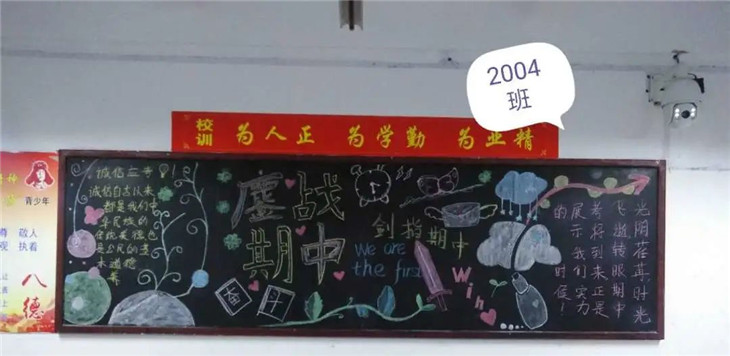 2004
班
校训
为人正 为学勤 为业精
青少年
敬人
执着
八德
诚信立亏
诚信自古以来
都是我们中
华民族的
是公民的基
本道德
鏖战
期中
奋斗
剑指期中
We are
the first
Win
光阴荏苒时光
飞逝转眼期中
考将到来正是
展示我们实力
的时候!